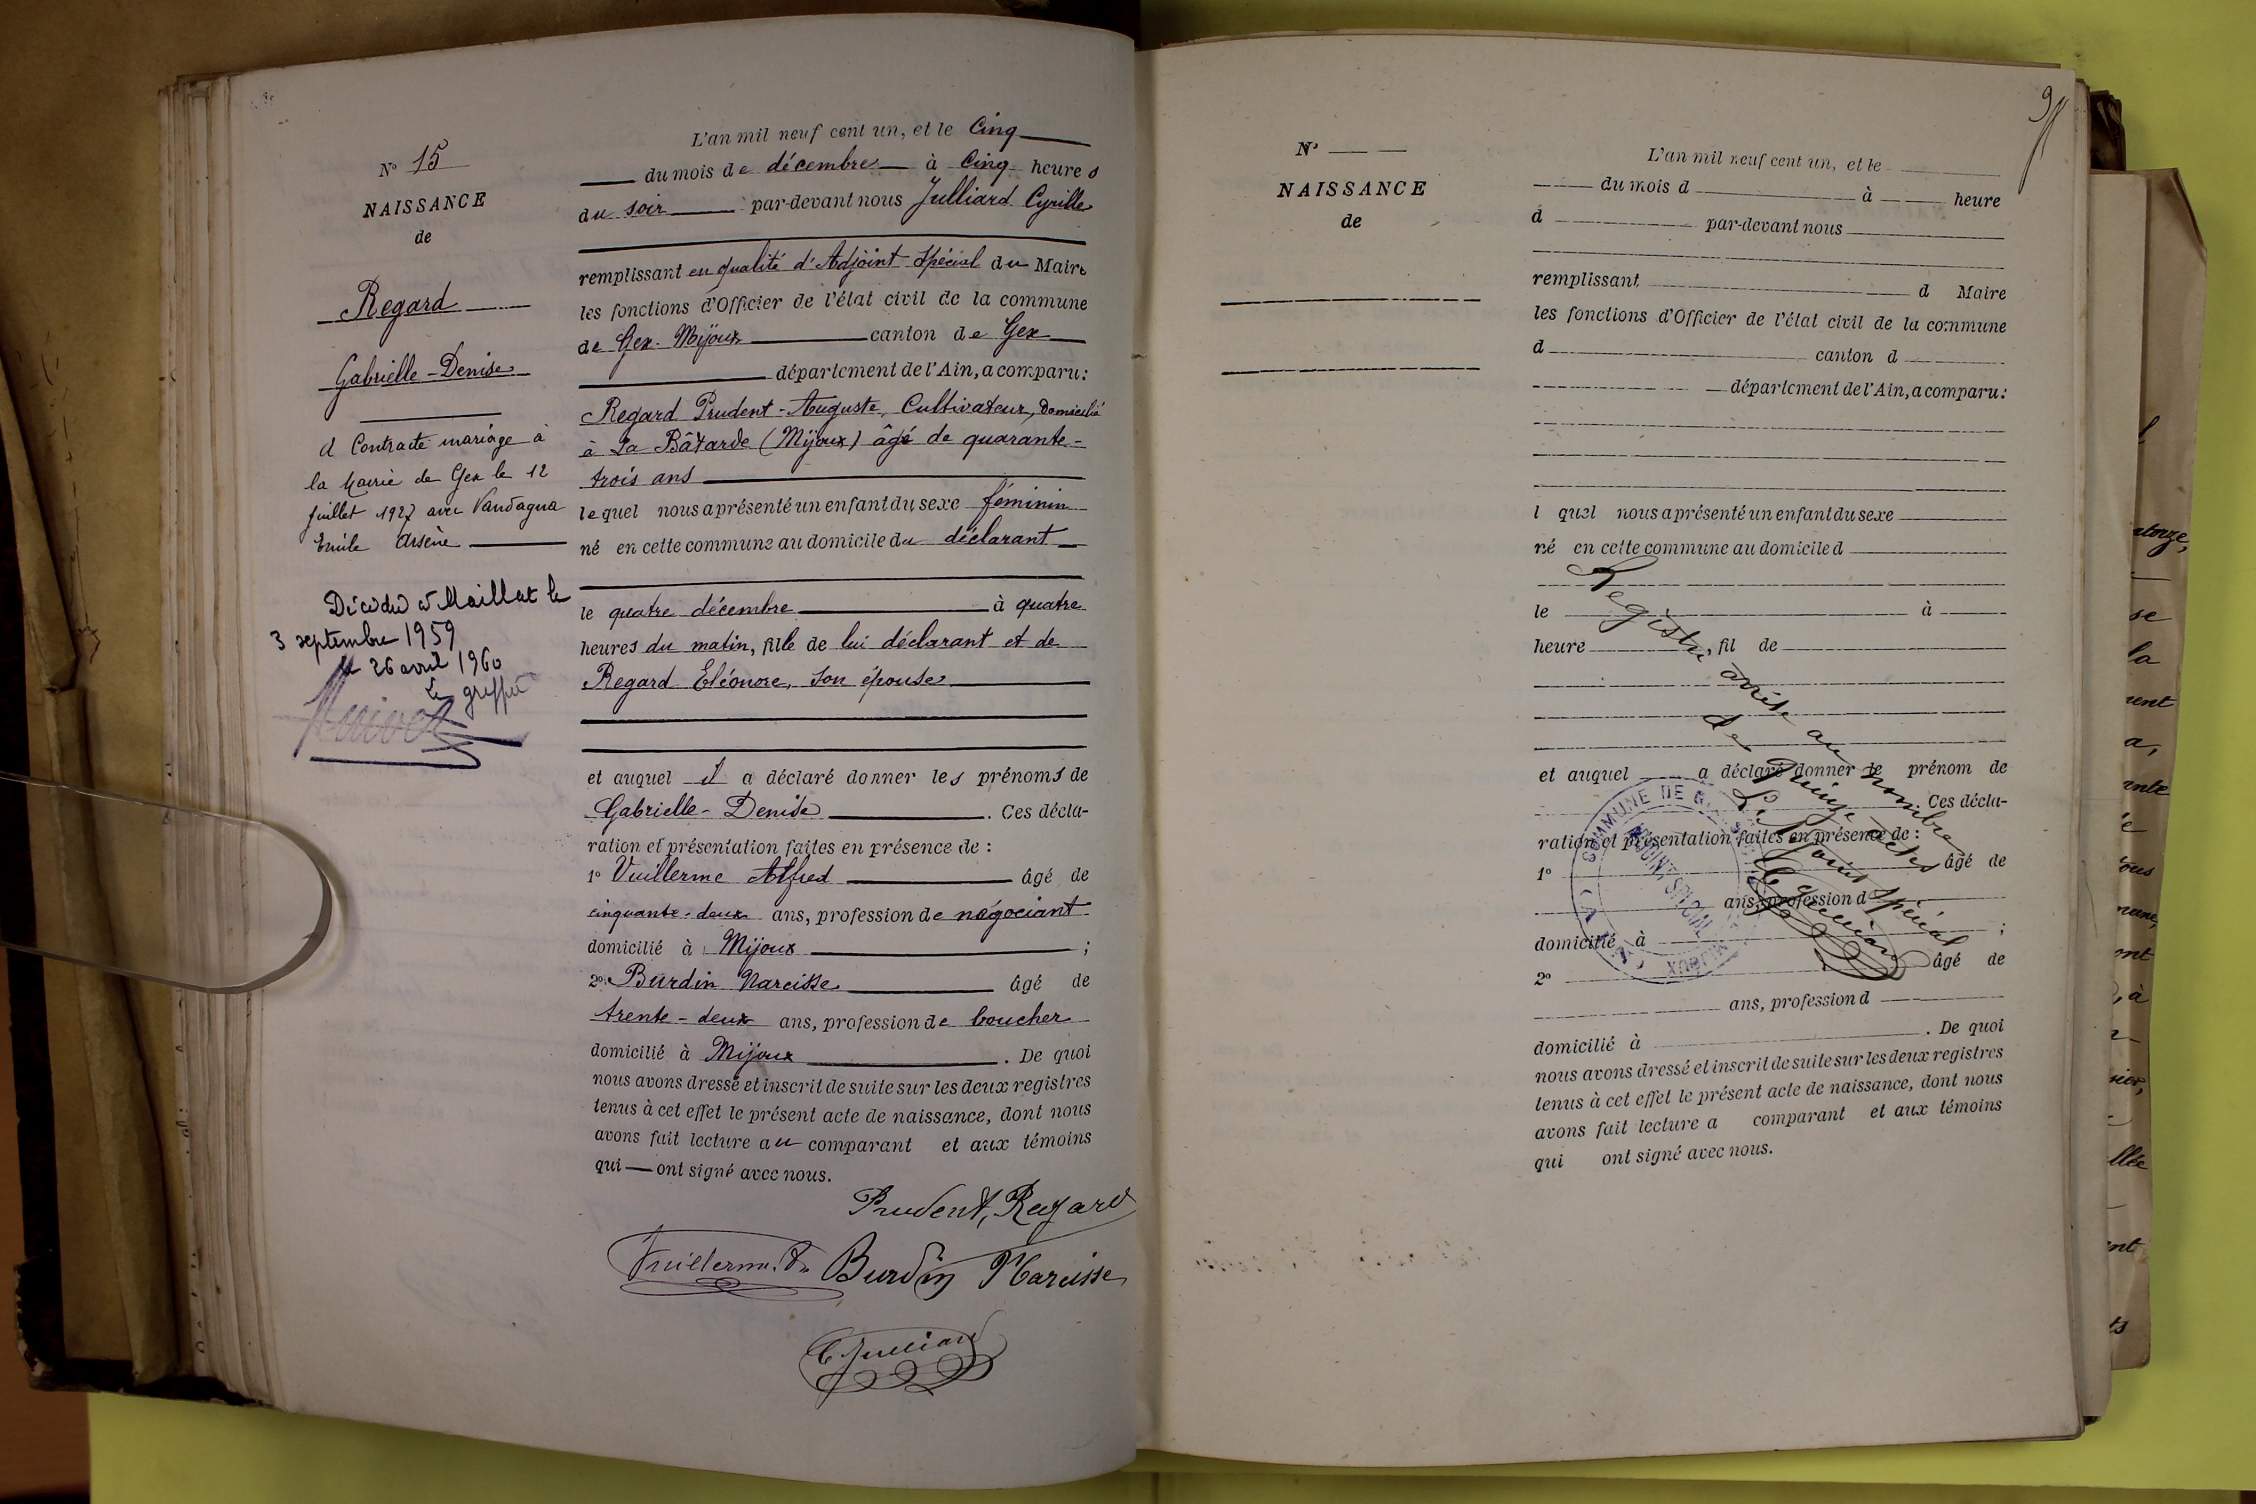 N° 15
NAISSANCE
de
Regard
Gabrielle-Denise
d Contracté mariage à
la Mairie de Gex le 12
juillet 1927 avec Vandagna
Emile Arsène
Décédée à Maillat le
3 septembre 1959
le 26 avril 1960
Le greffier
L'an mil neuf cent un, et le Cinq
du mois de décembre à Cinq heures
du soir par-devant nous Julliard Cyrille
remplissant en qualité d'Adjoint spécial du Maire
les fonctions d'Officier de l'état civil de la commune
de Gex-Mijoux canton de Gex
département de l'Ain, a comparu:
Regard Prudent-Auguste, Cultivateur, domicilié
à La Bâtarde (Mijoux) âgé de quarante-
trois ans
lequel nous a présenté un enfant du sexe féminin
né en cette commune au domicile du déclarant
le quatre décembre à quatre
heures du matin, fille de lui déclarant et de
Regard Eléonore, son épouse
et auquel il a déclaré donner les prénoms de
Gabrielle-Denise. Ces décla-
ration et présentation faites en présence de :
1° Vuillerme Alfred âgé de
cinquante-deux ans, profession de négociant
domicilié à Mijoux ;
2° Burdin Narcisse âgé de
trente-deux ans, profession de boucher
domicilié à Mijoux. De quoi
nous avons dressé et inscrit de suite sur les deux registres
tenus à cet effet le présent acte de naissance, dont nous
avons fait lecture au comparant et aux témoins
qui ont signé avec nous.
Prudent, Regard
Vuillerme. A. Burdin Narcisse
C. Julliard
9
N°
NAISSANCE
de
L'an mil neuf cent un, et le
du mois d à heure
d par-devant nous
remplissant d Maire
les fonctions d'Officier de l'état civil de la commune
d canton d
département de l'Ain, a comparu:
l quel nous a présenté un enfant du sexe
né en cette commune au domicile d
le à
heure , fil de
et auquel a déclaré donner le prénom de
. Ces décla-
ration et présentation faites en présence de :
1° âgé de
ans, profession d
domicilié à ;
2° âgé de
ans, profession d
domicilié à . De quoi
nous avons dressé et inscrit de suite sur les deux registres
tenus à cet effet le présent acte de naissance, dont nous
avons fait lecture a comparant et aux témoins
qui ont signé avec nous.
Registre arrêté au nombre
de Quinze actes
L'Adjoint Spécial
C. Julliard
COMMUNE DE G
ADJOINT SPÉCIAL
MIJOUX
(AIN)